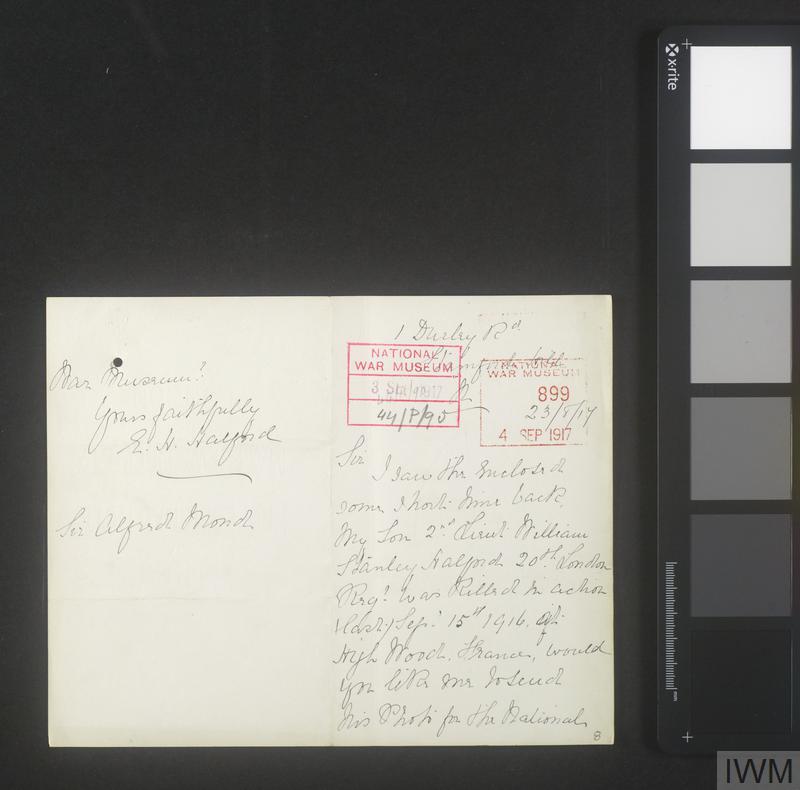 1 Durley Rd
Stamford Hill
N
23/8/17
NATIONAL
WAR MUSEUM
3 SEP 1917
44/P/95
NATIONAL
WAR MUSEUM
899
4 SEP 1917
Sir
I saw the enclosed
some short time back.
My Son 2nd Lieut William
Stanley Halford 20th London
Regt. was Killed in action
(last) Sep. 15th 1916. at
High Wood. France, would
you like me to send
his Photo for the National
8
War Museum?
Yours faithfully
E. H. Halford
Sir Alfred Mond
x·rite
mm
IWM